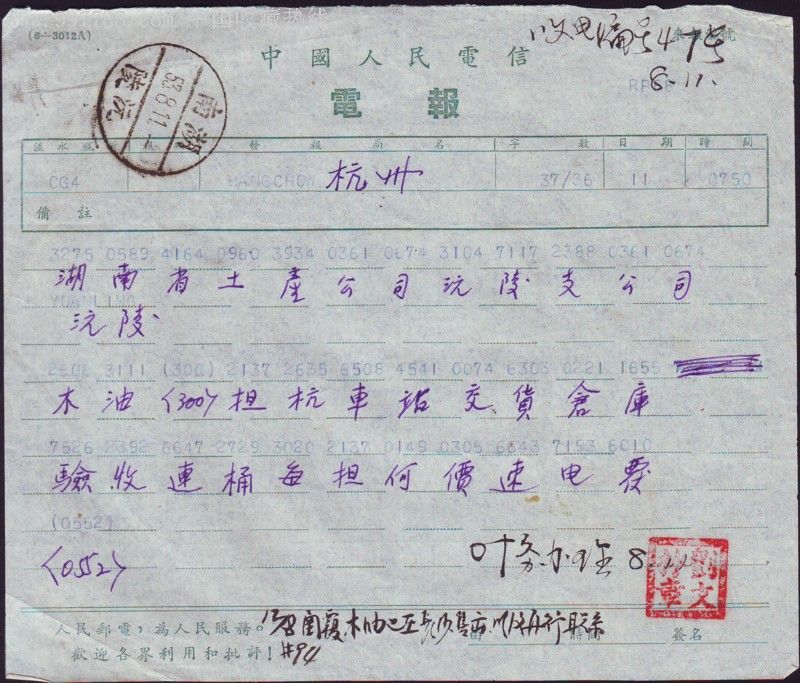 (6-3012A)
中國人民電信
收电编号47号
8.11.
電報
湖南
53.8.11.
沅陵
流水號 發報局名 字數 日期 時間
CG4 HANGCHOW 杭州 37/36 11 0750
備註
3275 0589 4164 0960 3934 0361 0674 3104 7117 2388 0361 0674
湖南省土產公司沅陵支公司
YUANLING
沅陵
2606 3111 (300) 2137 2635 6508 4541 0074 6303 0221 1655
木油〈300〉担杭車站交貨倉庫
7526 2392 0647 2729 3020 2137 0149 0305 6643 7193 6010
驗收連桶每担何價速电覆
(0552)
〈0552〉
8.11
劉文
章
人民郵電，為人民服務。
歡迎各界利用和批評！
#94
簽名